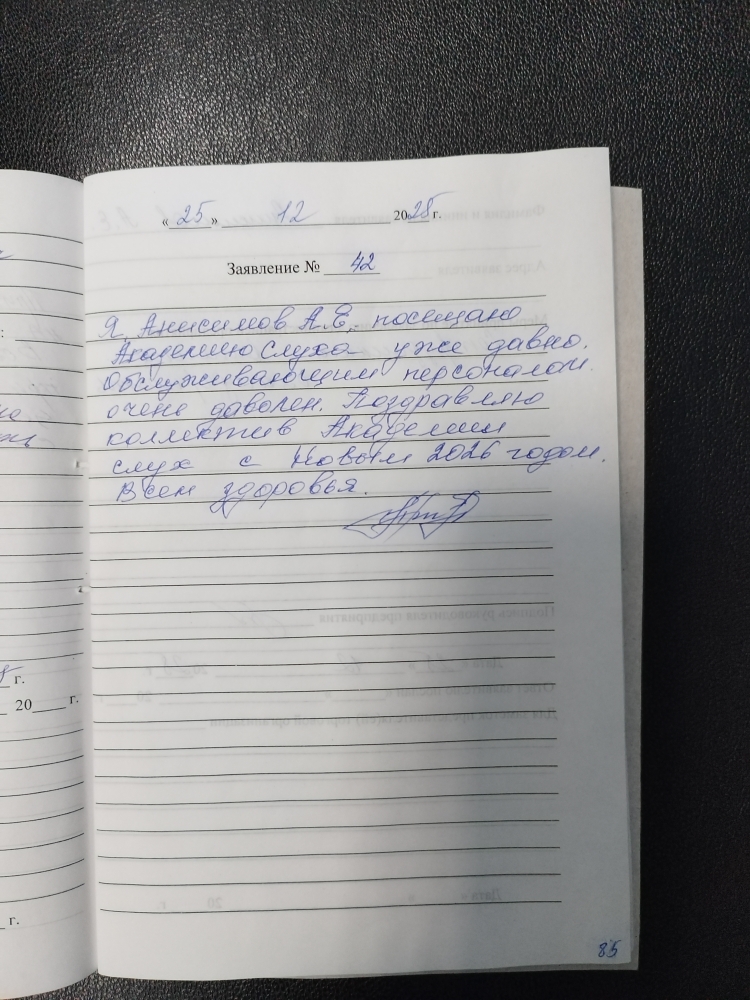 « 25 » 12 2025 г.
Заявление № 42
Я, Анисимов А.Е., посещаю
Академию слуха уже давно.
Обслуживающим персоналом
очень даволен. Поздравляю
коллектив Академии
слух с Новым 2026 годом.
Всем здоровья.
г.
20 г.
г.
85